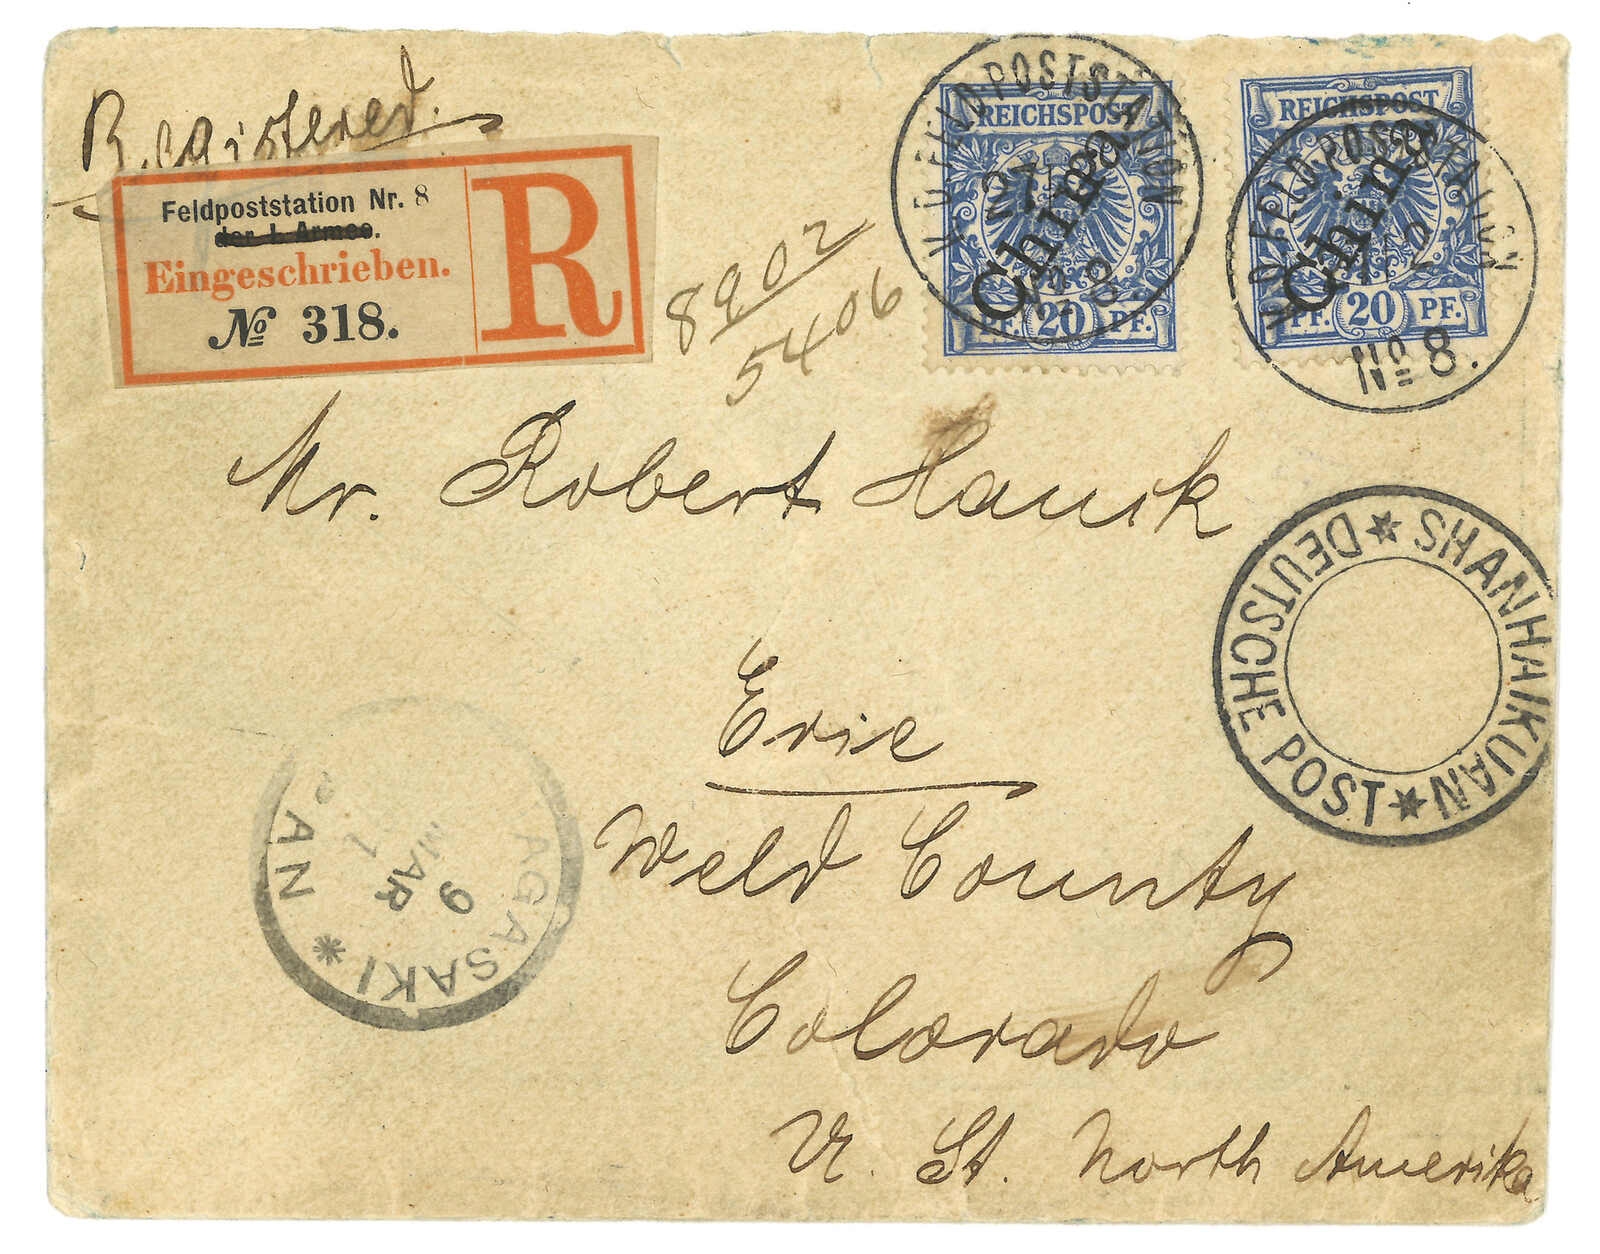 Registered.
Feldpoststation Nr. 8
der I. Armee.
Eingeschrieben.
№ 318.
R
8902
5406
K.D. FELD-POSTSTATION
REICHSPOST
China
PF. 20 PF.
K.D. FELD-POSTSTATION
No 8.
REICHSPOST
China
PF. 20 PF.
Mr. Robert Hauck
Erie
Weld County
Colorado
U. St. North Amerika
SHANHAIKUAN
DEUTSCHE POST
AGASAKI
PAN
9 MAR
1